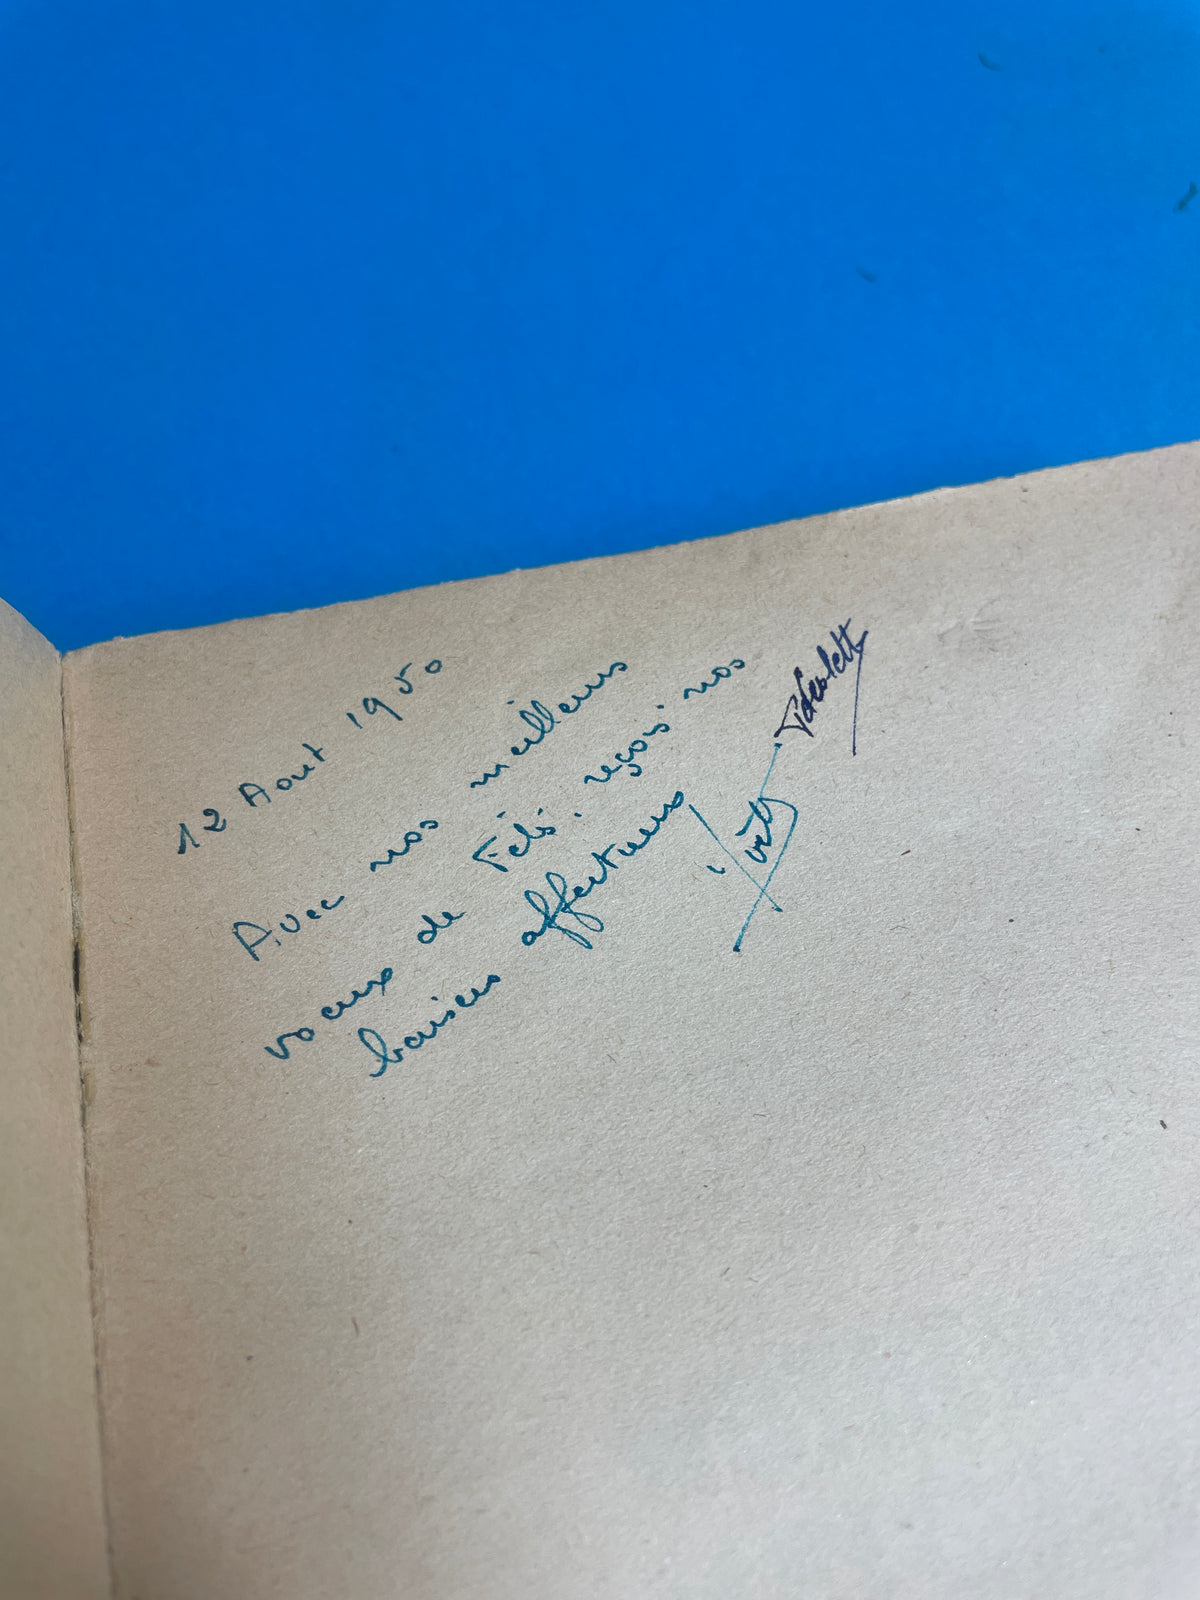 12 Aout 1950
Avec nos meilleurs
voeux de Fête. reçois nos
baisers affectueux